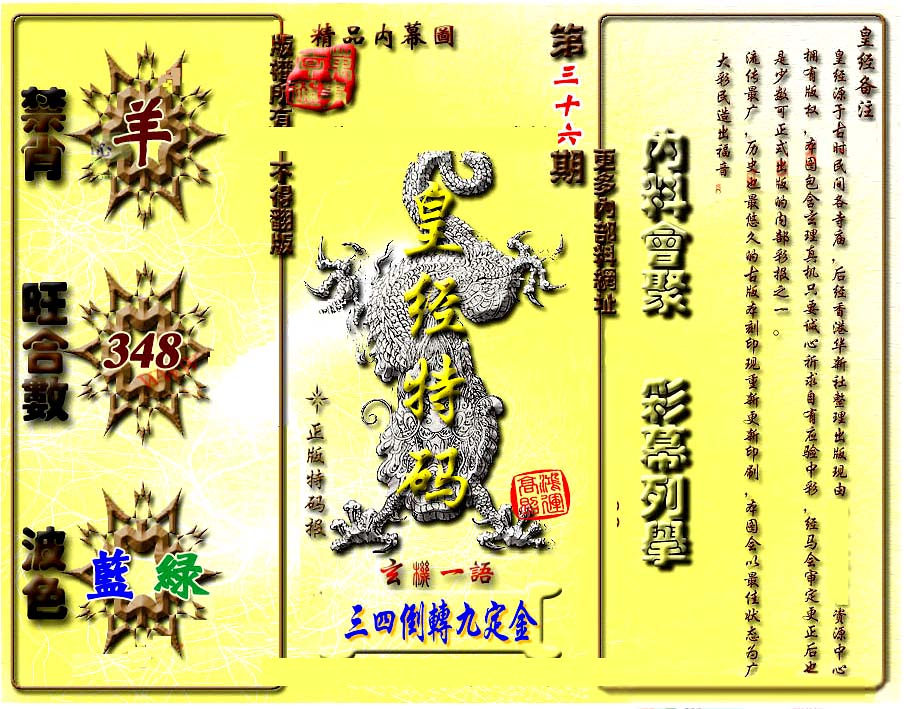 皇经备注
皇经源于古时民间各寺庙，后经香港华新社整理出版现由 资源中心
拥有版权，本图包含玄理真机只要诚心祈求自有应验中彩，经马会审定更正后也
是少数可正式出版的内部彩报之一。
流传最广，历史也最悠久的古版本刻印现重新更新印刷，本图会以最佳状态为广
大彩民造出福音。
内料會聚
彩幕列舉
更多内部料網址
第三十六期
精品内幕圖
版權所有
不得翻版
皇经特码
正版特码报
鴻運高照
玄機一語
三四倒轉九定金
禁肖
羊
旺合數
348
波色
藍 綠